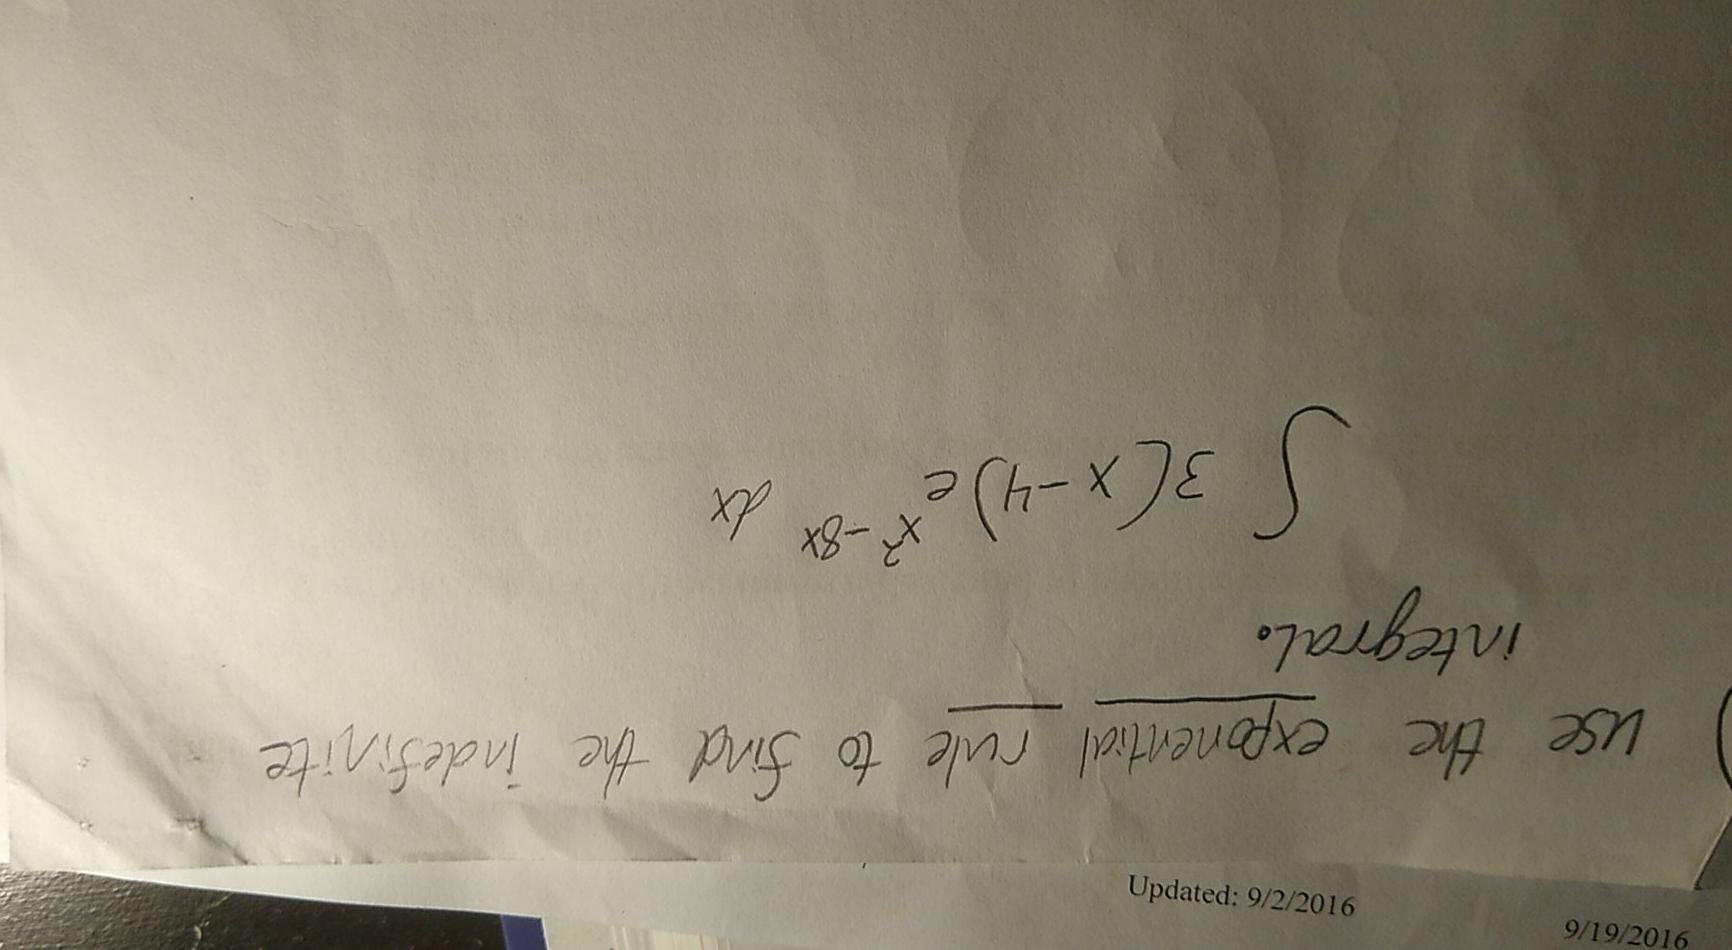 ) use the exponential rule to find the indefinite
integral.
∫ 3(x-4)e^{x²-8x} dx
Updated: 9/2/2016
9/19/2016